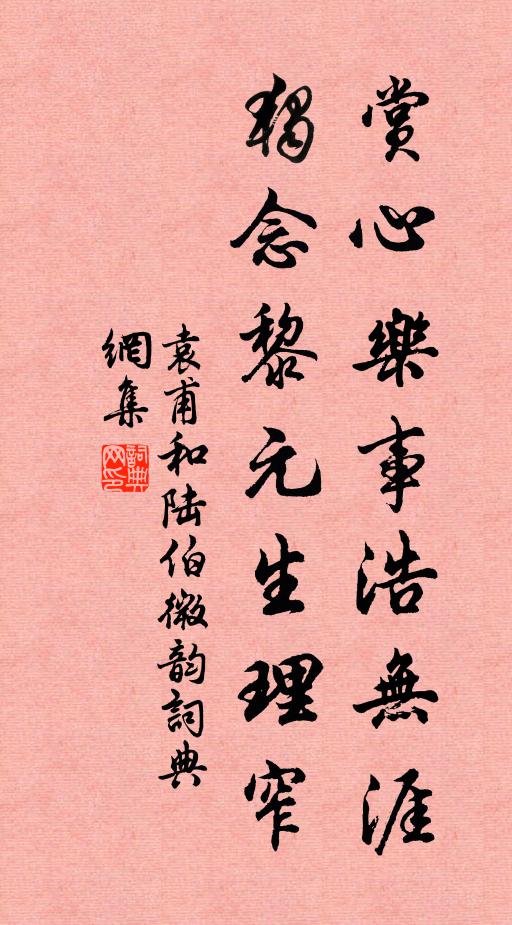 賞心樂事浩無涯
獨念黎元生理窄
袁甫和陆伯微韵詞典
網集
詞典网印